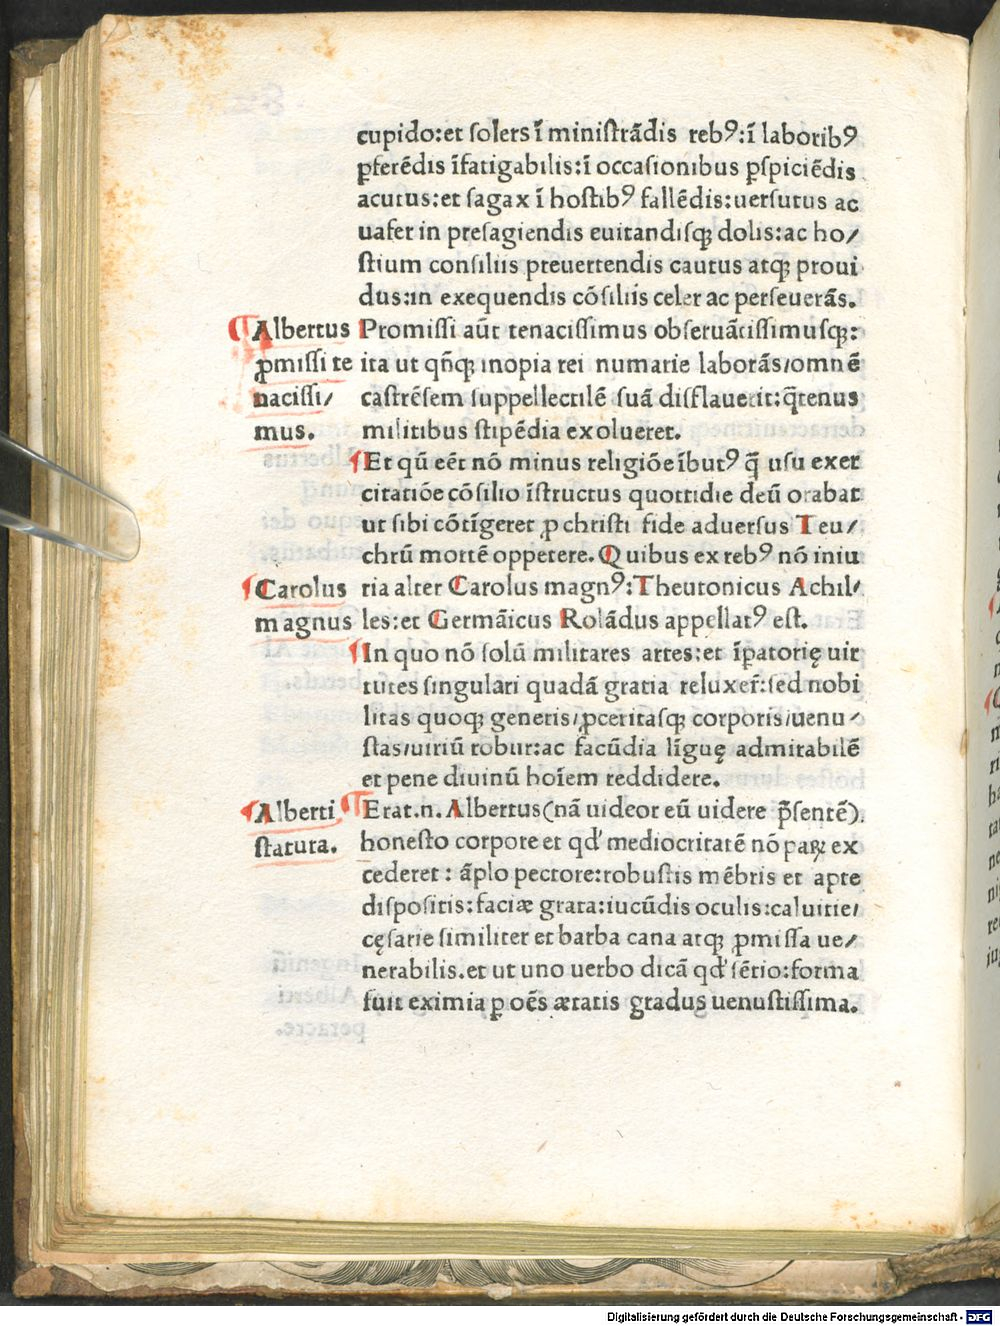 cupido:et ſolers ī miniſtrādis rebꝰ:ī laboribꝰ
ꝑferēdis īfatigabilis:ī occaſionibus ꝑſpiciēdis
acutus:et ſagax ī hoſtibꝰ fallēdis:uerſutus ac
uafer in preſagiendis euitandiſqꝫ dolis:ac ho/
ſtium conſiliis preuertendis cautus atqꝫ proui
dus:in exequendis cōſiliis celer ac perſeuerās.
¶Albertus
ꝓmiſſi te
naciſſi/
mus.
Promiſſi aūt tenaciſſimus obſeruātiſſimuſqꝫ:
ita ut qn̄qꝫ inopia rei numarie laborās/omnē
caſtrēſem ſuppellectilē ſuā diſflauerit:q̄tenus
militibus ſtipēdia exolueret.
¶Et qū eēt nō minus religiōe ībutꝰ q̄ uſu exer
citatiōe cōſilio īſtructus quottidie deū orabat
ut ſibi cōtīgeret ꝓ chriſti fide aduerſus Teu/
chrū mortē oppetere. Quibus ex rebꝰ nō iniu
¶Carolus
magnus
ria alter Carolus magnꝰ:Theutonicus Achil/
les:et Germāicus Rolādus appellatꝰ eſt.
¶In quo nō ſolū militares artes:et īꝑatorię uir
tutes ſingulari quadā gratia reluxer̄:ſed nobi
litas quoqꝫ generis/ꝓceritaſqꝫ corporis/uenu/
ſtas/uiriū robur:ac facūdia līguę admirabilē
et pene diuinū hoīem reddidere.
¶Alberti
ſtatura.
¶Erat.n. Albertus(nā uideor eū uidere p̄ſentē)
honeſto corpore et qd' mediocritatē nō paꝝ ex
cederet: āplo pectore:robuſtis mēbris et apte
diſpoſitis:faciæ grata:iucūdis oculis:caluitie/
cęſarie ſimiliter et barba cana atqꝫ ꝓmiſſa ue/
nerabilis.et ut uno uerbo dicā qd' ſētio:forma
fuit eximia ꝑ oēs ætatis gradus uenuſtiſſima.
Digitalisierung gefördert durch die Deutsche Forschungsgemeinschaft - DFG